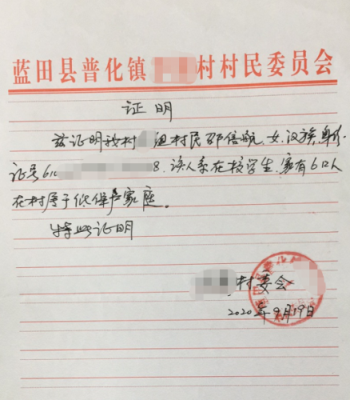 蓝田县普化镇 村村民委员会
证明
兹证明我村 组村民邵倍 女、汉族、身份
证号61 8、该人系在校学生、家有6口人
在村属于低保户家庭。
特此证明
村委会
2020年9月19日